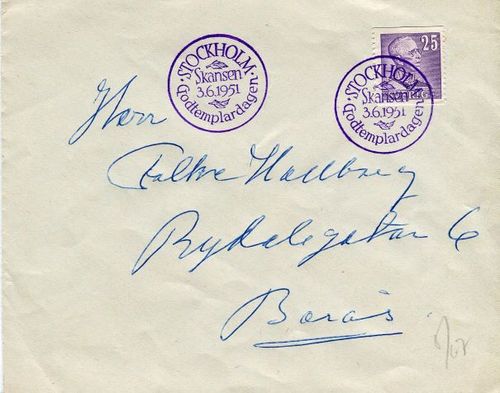 STOCKHOLM
Skansen
3.6.1951
Godtemplardagen
25
STOCKHOLM
Skansen
3.6.1951
Godtemplardagen
Herr
Folke Hallberg
Rydalegatan 6
Borås